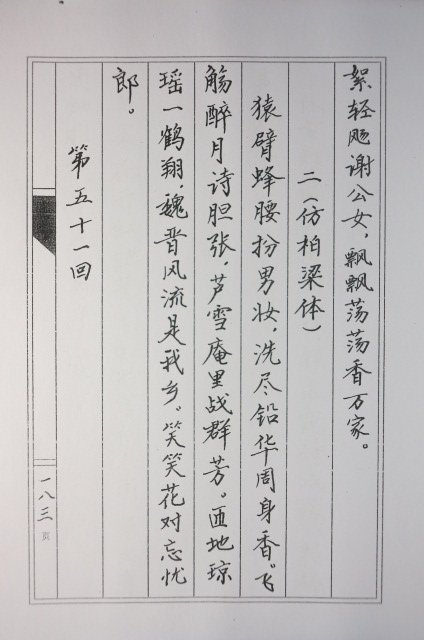 絮轻飏谢公女，飘飘荡荡香万家。
二（仿柏梁体）
猿臂蜂腰扮男妆，洗尽铅华周身香。飞
觞醉月诗胆张，芦雪庵里战群芳。匝地琼
瑶一鹤翔，魏晋风流是我乡。笑笑花对忘忧
郎。
第五十一回
一八三
页